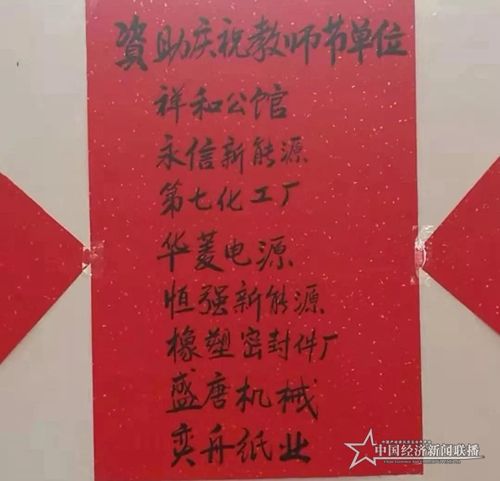 資助庆祝教师节单位
祥和公馆
永信新能源
第七化工厂
华菱电源
恒强新能源
橡塑密封件厂
盛唐机械
奕舟纸业
中国经济新闻联播